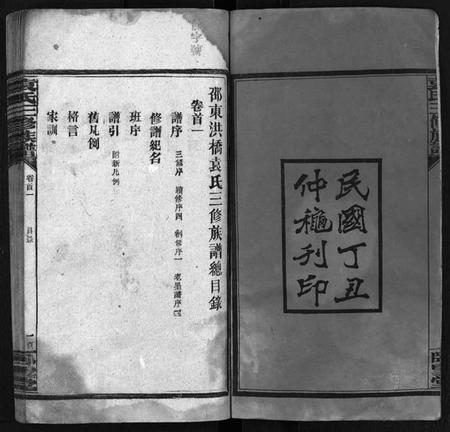 民國丁丑
仲龝刋印
邵東洪橋袁氏三修族譜總目錄
卷首一
譜序 三修序 續修序四 創修序一 老墨譜序四
修譜紀名
班序
譜引
舊凡例 附新凡例
格言
家訓
袁氏三修族譜
卷首一
目錄
一